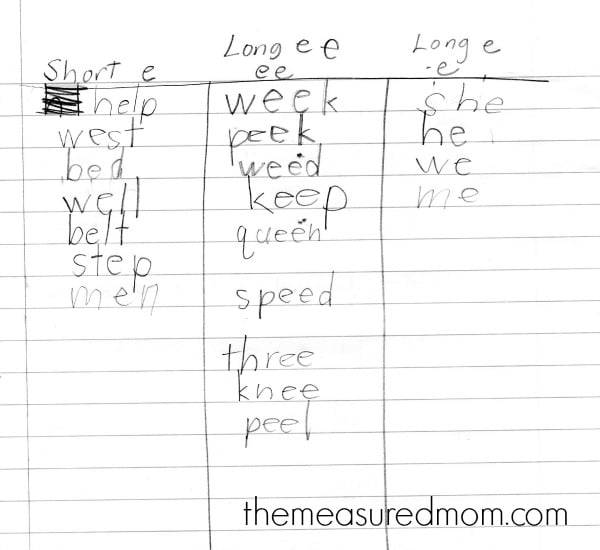 Short e
help
west
bed
well
belt
step
men
Long e e
ee
week
peek
weed
keep
queen
speed
three
knee
peel
Long e
-e
she
he
we
me
themeasuredmom.com